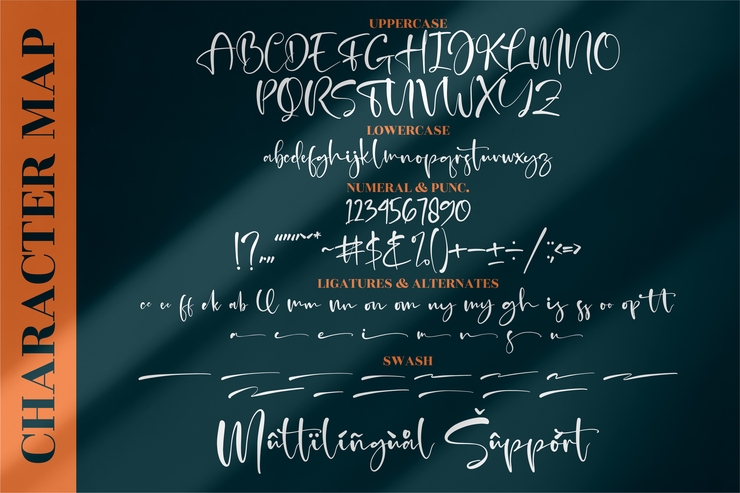 CHARACTER MAP
UPPERCASE
ABCDEFGHIJKLMNO
PQRSTUVWXYZ
LOWERCASE
abcdefghijklmnopqrstuvwxyz
NUMERAL & PUNC.
1234567890
LIGATURES & ALTERNATES
cc ee ff ek ab ll mm nn on om ny my gh is ss oo op tt
a c e i m n s u
SWASH
Mûttïlíñgùål Šûppòrt